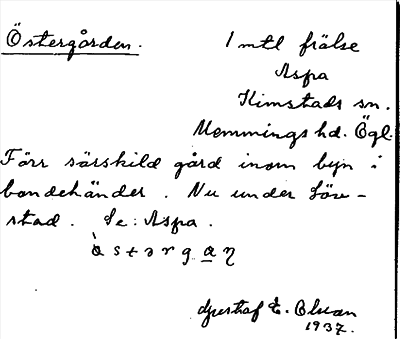 Östergården. 1 mtl frälse
Aspa
Kimstads sn.
Memmings hd. Ögl.
Förr särskild gård inom byn i
bondehänder. Nu under Löv-
stad. Se: Aspa.
ὰstərgaη
Gusthaf E. Olsson
1937.